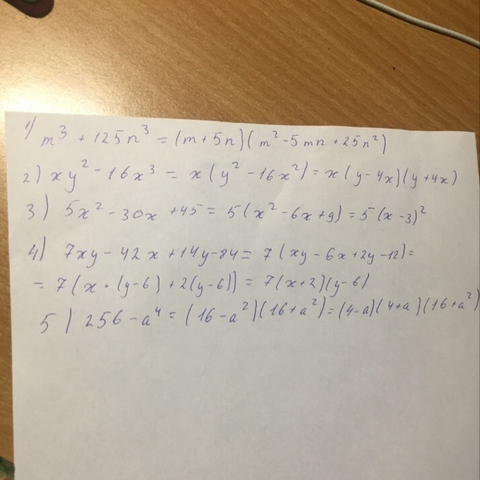 1) m³ + 125n³ = (m+5n)(m² - 5mn + 25n²)
2) xy² - 16x³ = x(y² - 16x²) = x(y - 4x)(y + 4x)
3) 5x² - 30x + 45 = 5(x² - 6x + 9) = 5(x - 3)²
4) 7xy - 42x + 14y - 84 = 7(xy - 6x + 2y - 12) =
= 7(x · (y - 6) + 2(y - 6)) = 7(x + 2)(y - 6)
5) 256 - a⁴ = (16 - a²)(16 + a²) = (4 - a)(4 + a)(16 + a²)